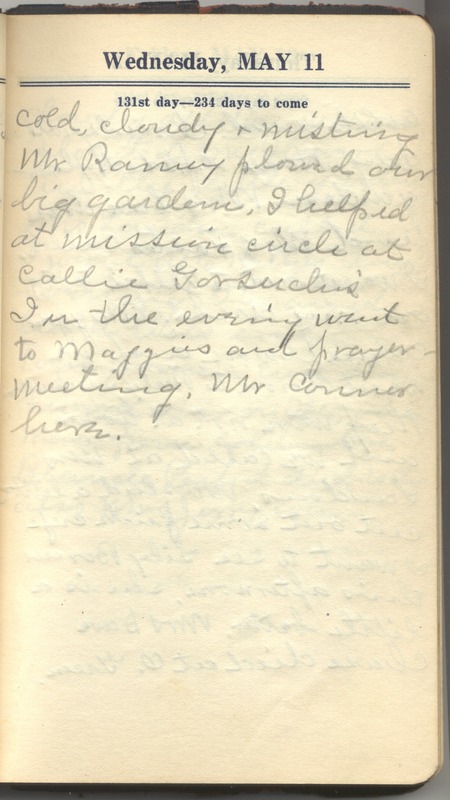 Wednesday, MAY 11
131st day—234 days to come
cold, cloudy + misting
Mr Ramey plowed our
big garden. I helped
at mission circle at
Callie Gorsuchs
In the evening went
to Maggies and prayer-
meeting. Mr Conner
here.